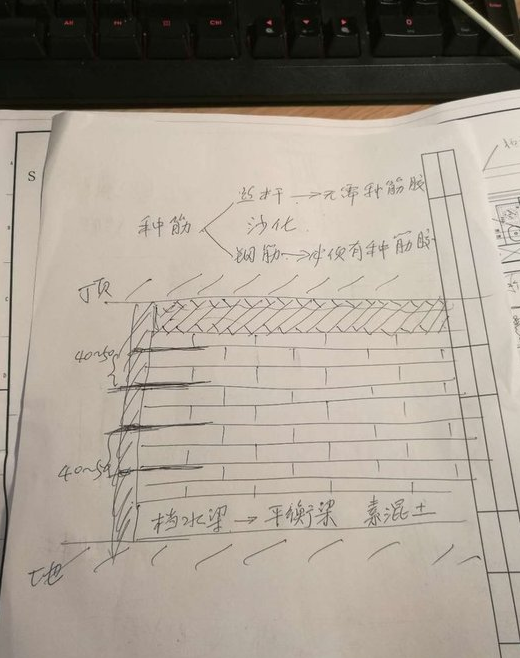 丝杆→无需种筋胶
种筋 沙化
钢筋→必须有种筋胶
顶
40~50
40~50
挡水梁→平衡梁 素混土
地
S
Alt
Fn
Ctrl
0
Enter